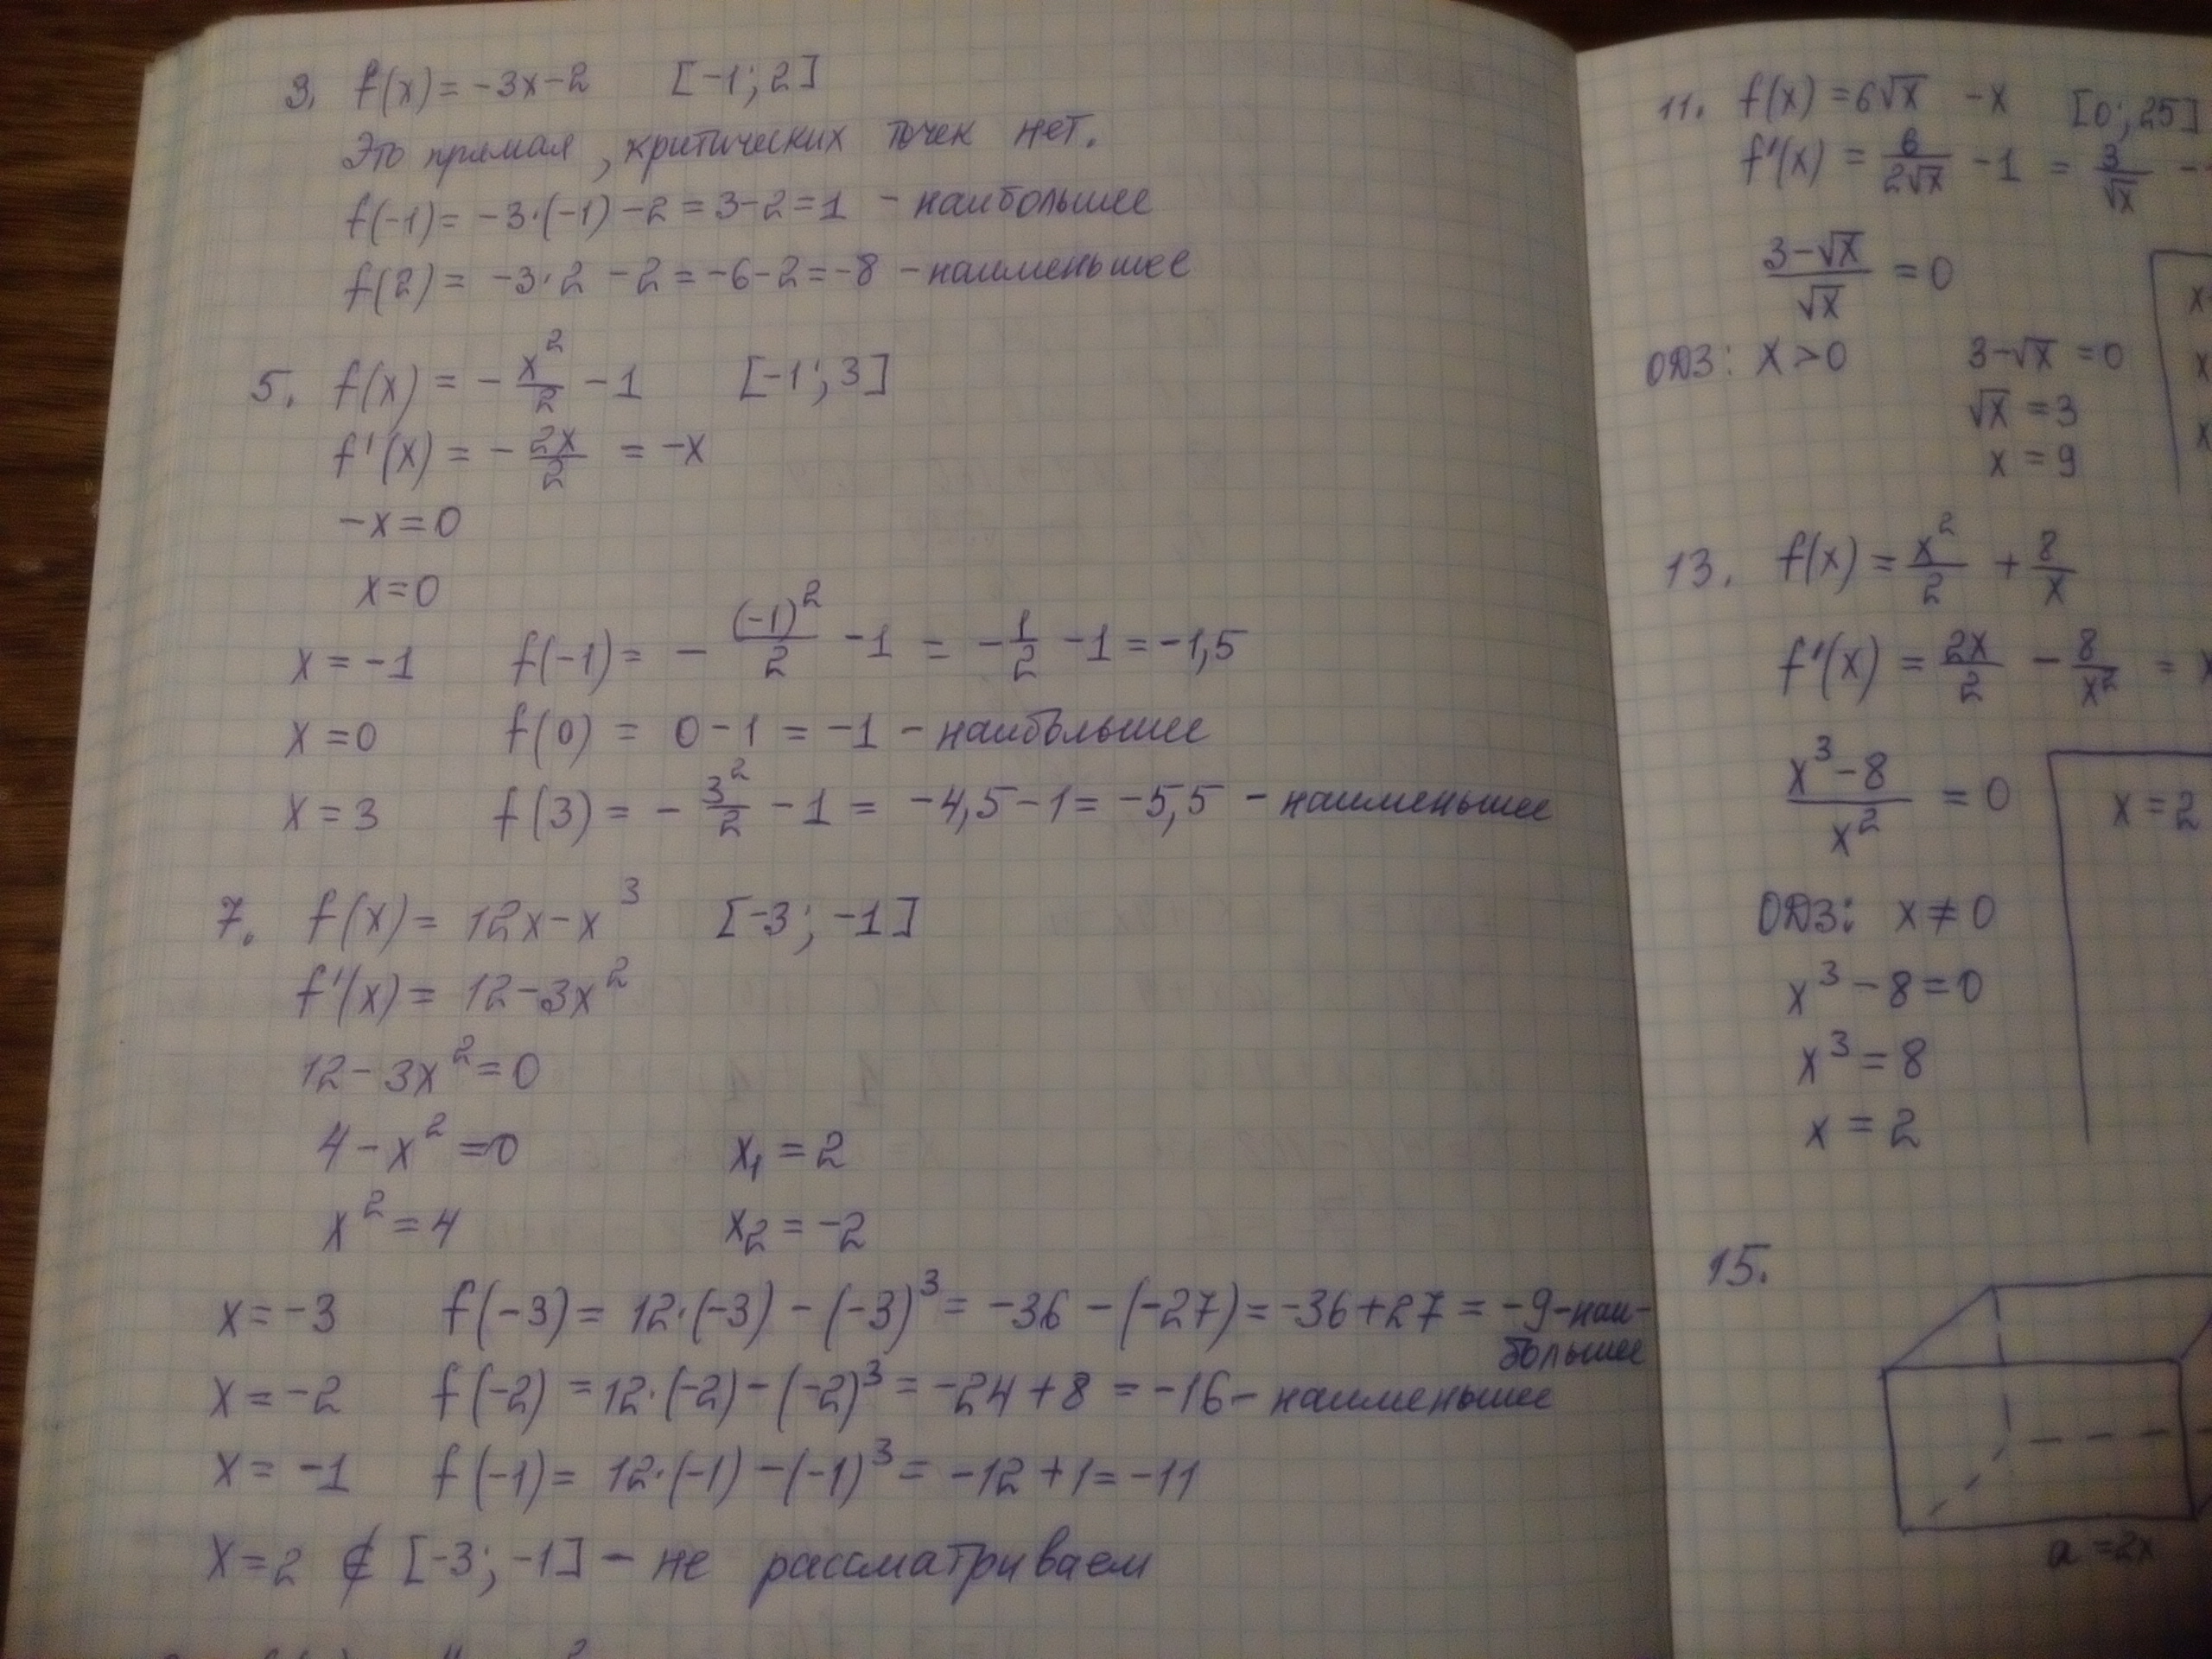 3. f(x) = -3x-2 [-1; 2]
Это прямая, критических точек нет.
f(-1) = -3·(-1) -2 = 3-2 = 1 - наибольшее
f(2) = -3·2 -2 = -6-2 = -8 - наименьшее
5. f(x) = -x²/2 -1 [-1; 3]
f'(x) = -2x/2 = -x
-x=0
x=0
x = -1 f(-1) = -(-1)²/2 -1 = -1/2 -1 = -1,5
x = 0 f(0) = 0-1 = -1 - наибольшее
x = 3 f(3) = -3²/2 -1 = -4,5-1 = -5,5 - наименьшее
7. f(x) = 12x-x³ [-3; -1]
f'(x) = 12-3x²
12-3x²=0
4-x²=0 x₁ = 2
x²=4 x₂ = -2
x = -3 f(-3) = 12·(-3) - (-3)³ = -36 - (-27) = -36+27 = -9 - наи-
большее
x = -2 f(-2) = 12·(-2) - (-2)³ = -24+8 = -16 - наименьшее
x = -1 f(-1) = 12·(-1) - (-1)³ = -12+1 = -11
x=2 ∉ [-3; -1] - не рассматриваем
11. f(x) = 6√x -x [0; 25]
f'(x) = 6/2√x -1 = 3/√x -
3-√x/√x = 0
ОДЗ: x>0 3-√x = 0
√x = 3
x = 9
13. f(x) = x²/2 + 8/x
f'(x) = 2x/2 - 8/x² = x
x³-8/x² = 0
x = 2
ОДЗ: x ≠ 0
x³-8=0
x³=8
x = 2
15.
a = 2x